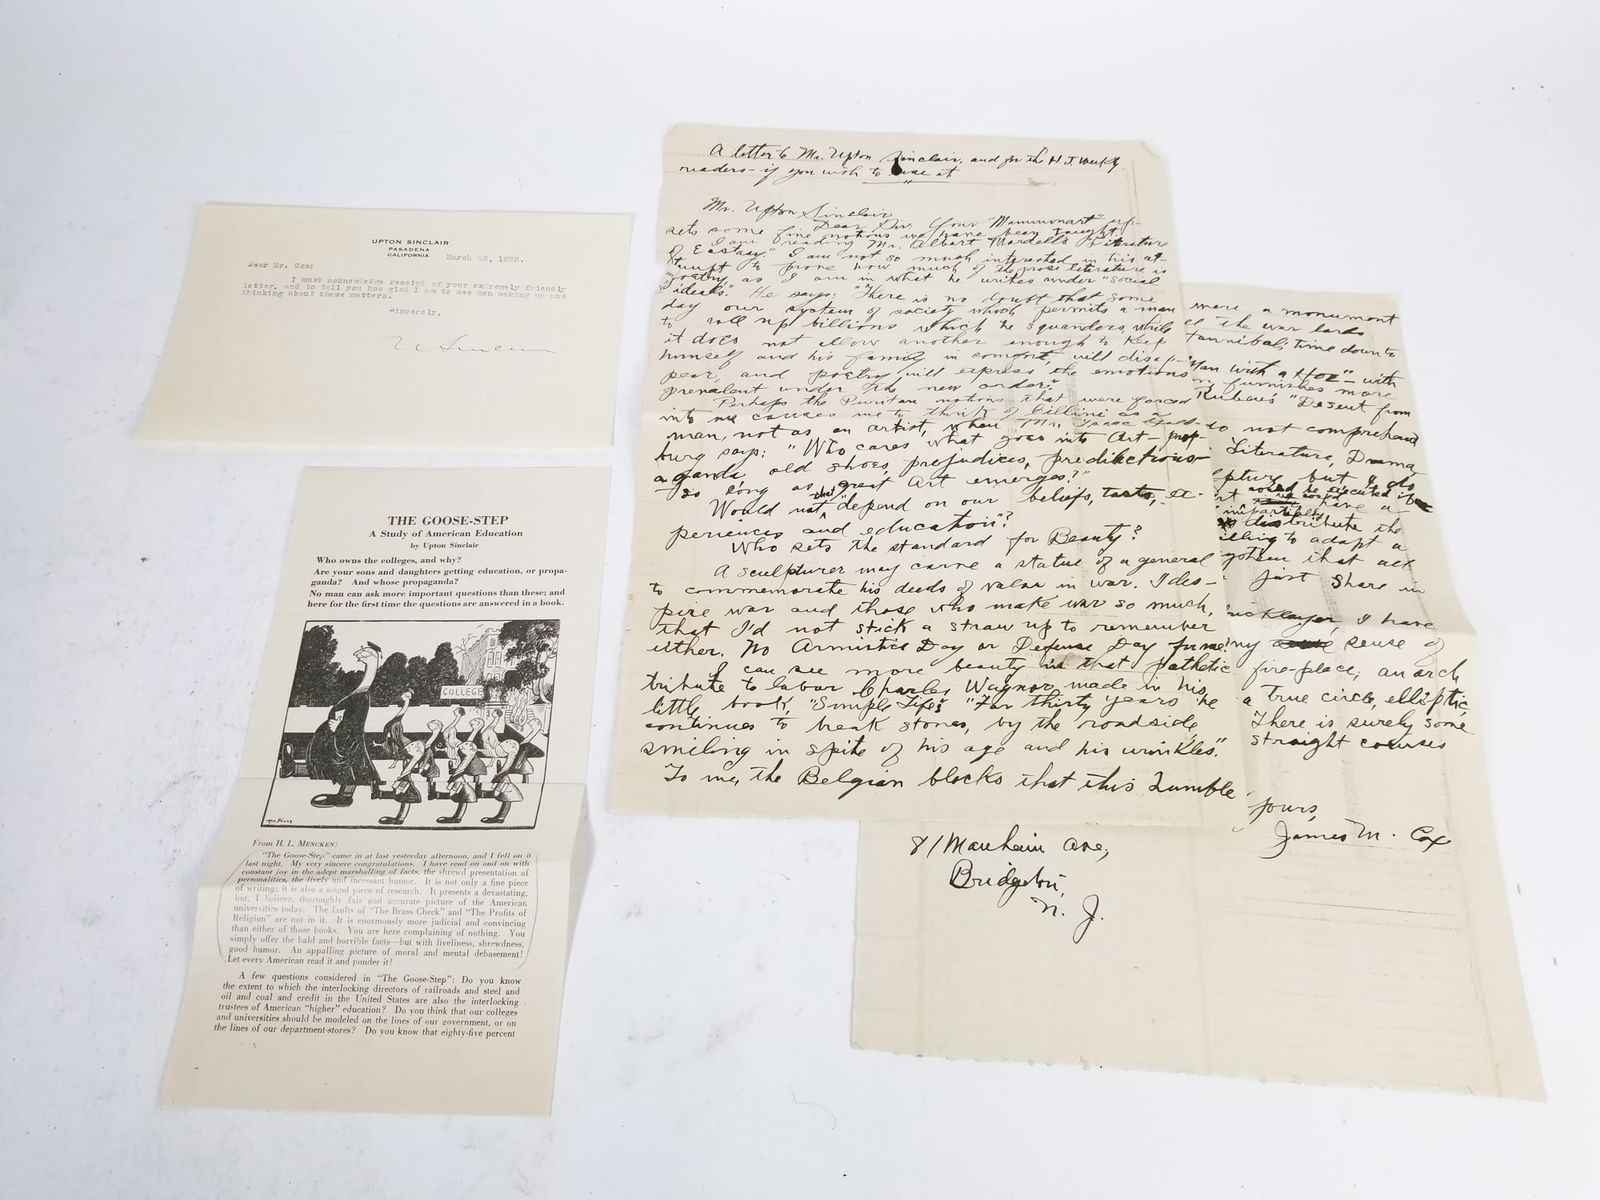 UPTON SINCLAIR
PASADENA
CALIFORNIA
March
Dear Mr. Cox:
I must acknowledge receipt of your extremely friendly
letter, and to tell you how glad I am to see men waking up and
thinking about these matters.
Sincerely,
THE GOOSE-STEP
A Study of American Education
by Upton Sinclair
Who owns the colleges, and why?
Are your sons and daughters getting education, or propa-
ganda? And whose propaganda?
No man can ask more important questions than these; and
here for the first time the questions are answered in a book.
COLLEGE
From H. L. MENCKEN:
"The Goose-Step" came in at last yesterday afternoon, and I fell on it
last night. My very sincere congratulations. I have read on and on with
constant joy in the adept marshalling of facts, the shrewd presentation of
personalities, the lively and incessant humor. It is not only a fine piece
of writing; it is also a sound piece of research. It presents a devastating,
but, I believe, thoroughly fair and accurate picture of the American
universities today. The faults of "The Brass Check" and "The Profits of
Religion" are not in it. It is enormously more judicial and convincing
than either of those books. You are here complaining of nothing. You
simply offer the bald and horrible facts—but with liveliness, shrewdness,
good humor. An appalling picture of moral and mental debasement!
Let every American read it and ponder it!
A few questions considered in "The Goose-Step": Do you know
the extent to which the interlocking directors of railroads and steel and
oil and coal and credit in the United States are also the interlocking
trustees of American "higher" education? Do you think that our colleges
and universities should be modeled on the lines of our government, or on
the lines of our department-stores? Do you know that eighty-five percent
A letter to Mr. Upton Sinclair, and for the
readers - if you wish to use it
Mr. Upton Sinclair
Dear Sir, Your "Mammonart" up-
sets some fine notions we have been taught.
I am reading Mr. Albert Mordell's "Literature
of Ecstasy." I am not so much interested in his at-
tempt to prove how much of the prose literature is
poetry, as I am in what he writes under "social
ideals." He says: "There is no doubt that some
day our system of society which permits a man
to roll up billions which he squanders, while
it does not allow another enough to keep
himself and his family in comfort, will disap-
pear, and poetry will express the emotions
prevalent under the new order."
Perhaps the Puritan notions that were forced
into me causes me to think of Cellini as a
man, not as an artist, when Mr. Isaac Gold-
burg says: "Who cares what goes into Art - prop-
aganda, old shoes, prejudices, predilections
- so long as great Art emerges?"
Would not that depend on our beliefs, tastes, ex-
periences and education?
Who sets the standard for Beauty?
A sculpturer may carve a statue of a general
to commemorate his deeds of valor in war. I des-
pise war and those who make war so much,
that I'd not stick a straw up to remember
either. No Armistice Day or Defense Day for me!
I can see more beauty in that pathetic
tribute to labor Charles Wagner made in his
little book, "Simple Life": "For thirty years he
continues to break stones, by the roadside,
smiling in spite of his age and his wrinkles."
To me, the Belgian blocks that this humble
were a monument
the war lords
Hannibal's time down to
"Man with a Hoe" - with
furnishes more
"Descent from
do not comprehend
Literature, Drama,
but I do
have a
impartially
distribute the
willing to adapt a
that all
just share in
bricklayer, I have
my sense of
fire-place, an arch
a true circle, elliptic
There is surely some
straight courses
Yours,
James M. Cox
81 Manheim Ave,
Bridgeton,
N. J.